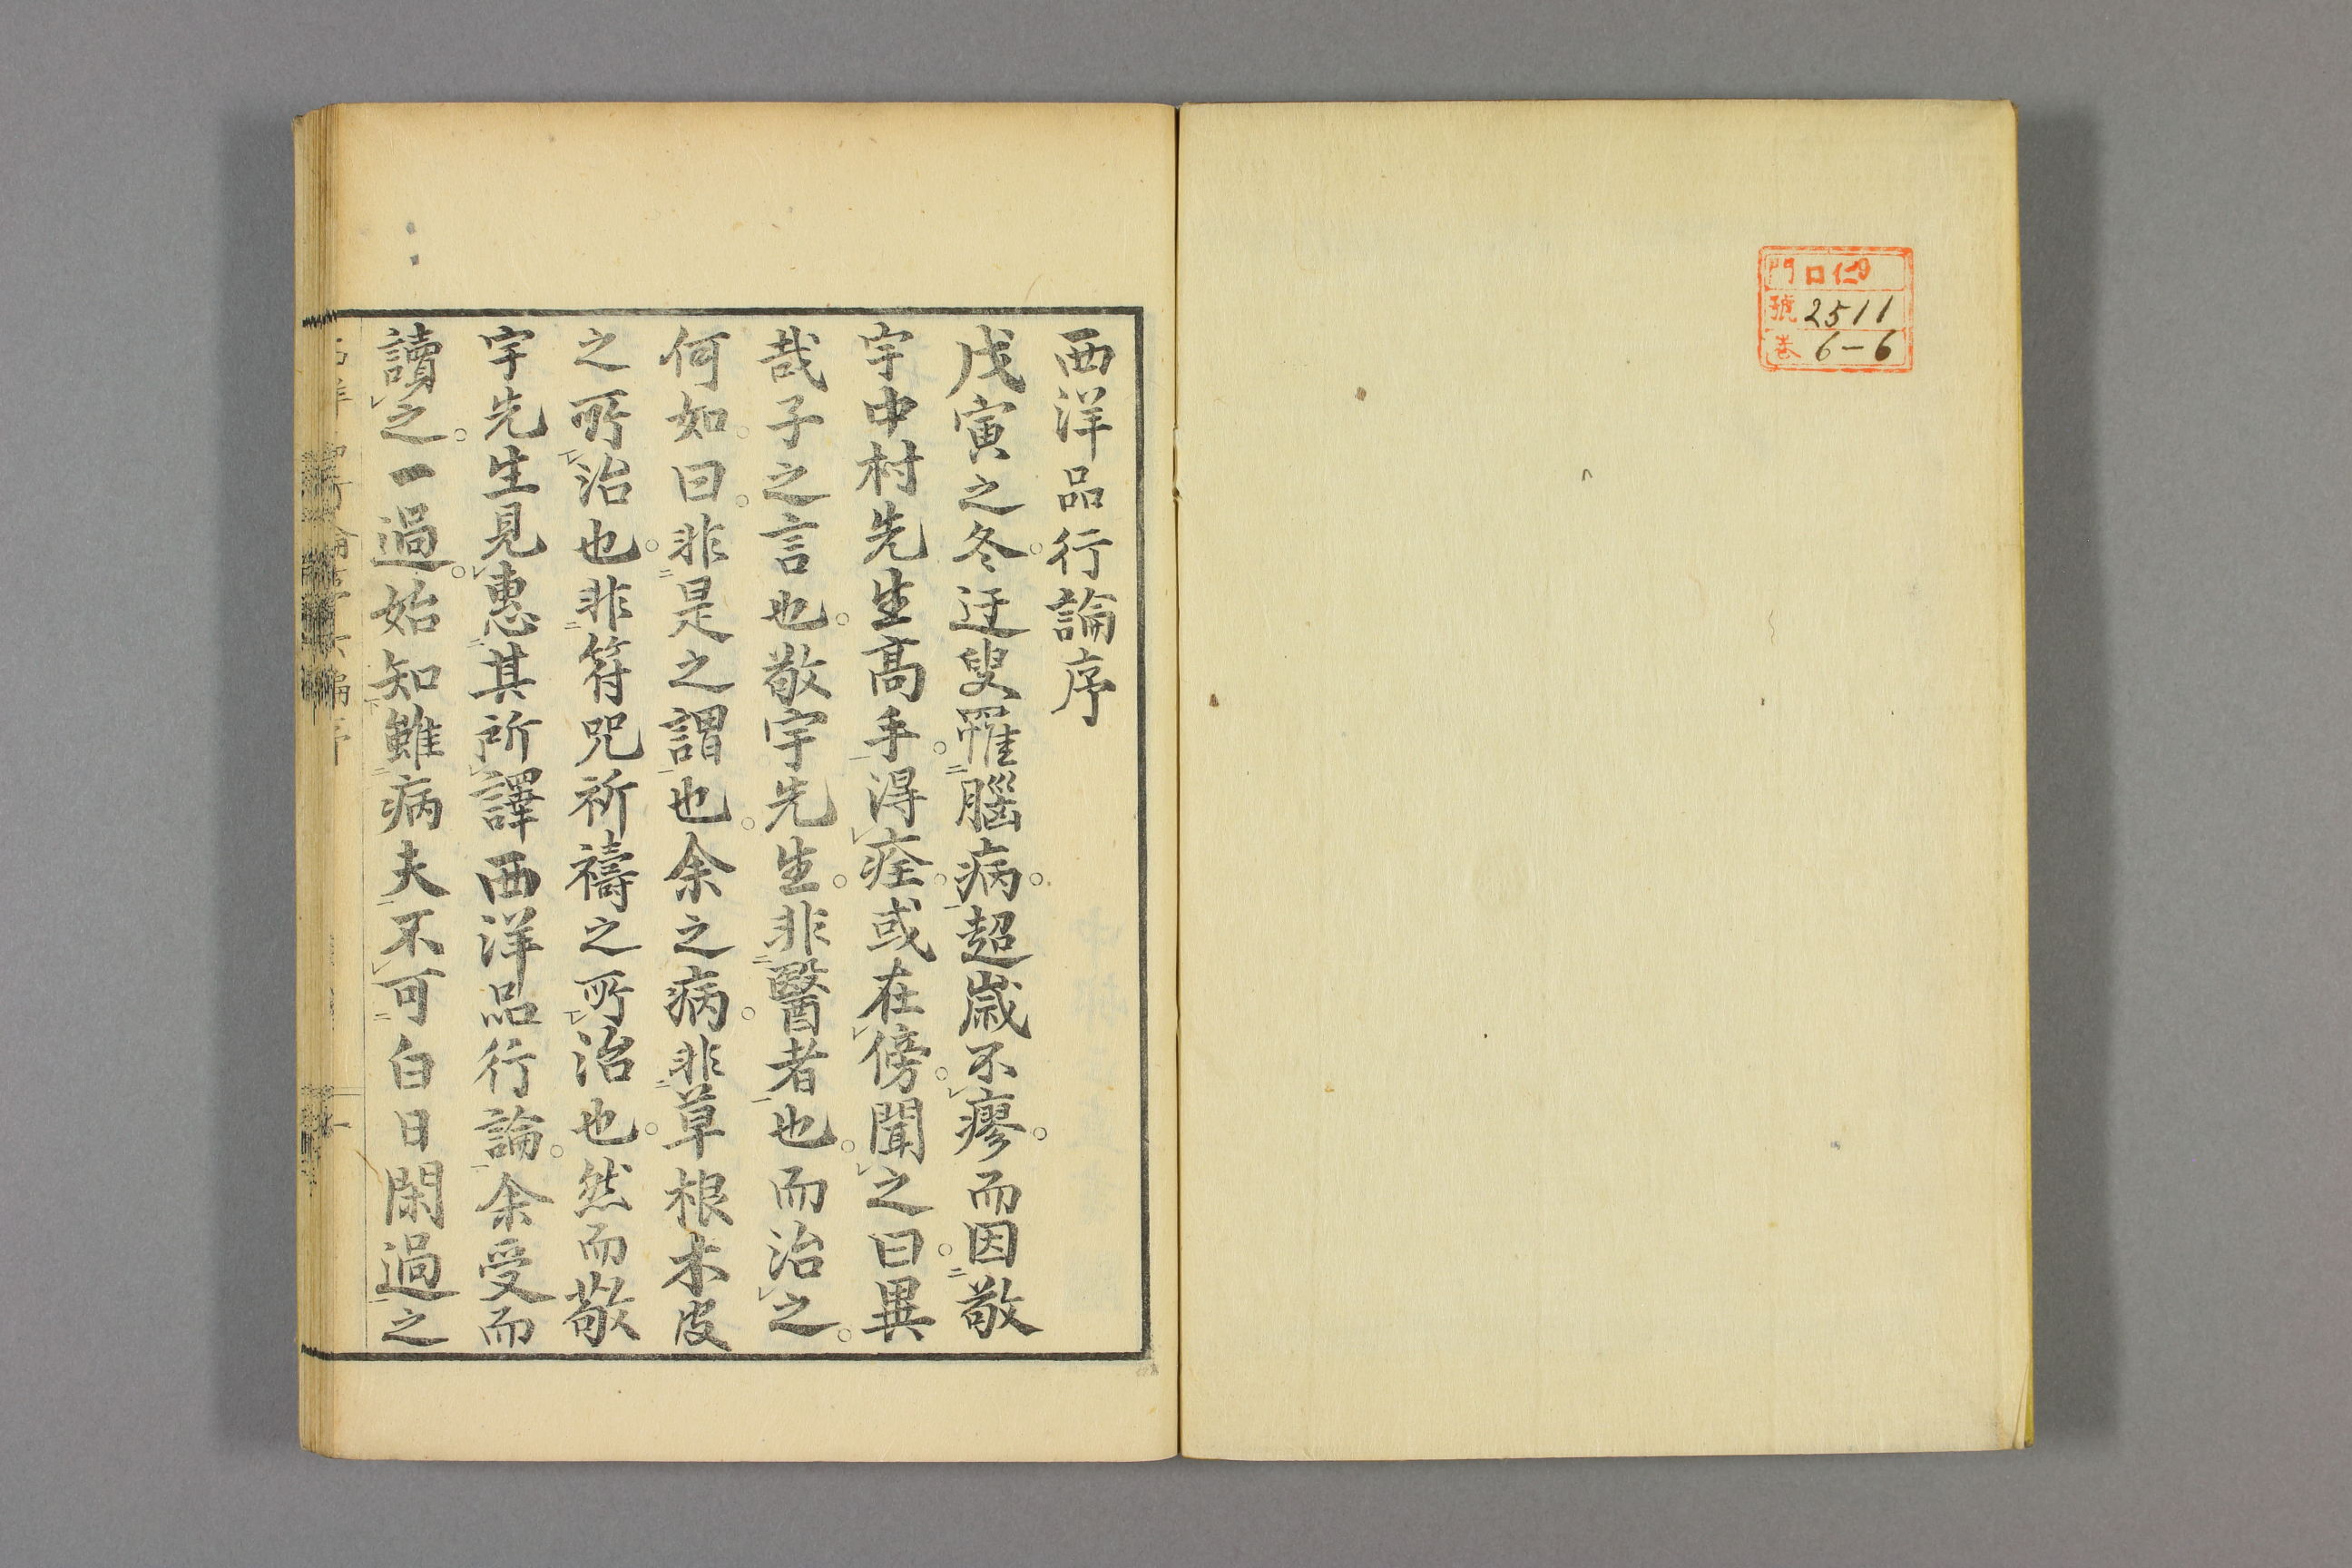 門 口仁9
號 2511
卷 6-6
西洋品行論序
戊寅之冬。迂叟罹㆓腦病㆒。超歳不㆑瘳。而因㆓敬
宇中村先生高手㆒。得㆑痊。或在㆑傍。聞㆑之。曰異
哉子之言也。敬宇先生。非㆓醫者㆒也。而治㆑之。
何如。曰。非㆓是之謂㆒也。余之病。非㆓草根木皮
之所㆑治也。非㆓符咒祈禱之所㆑治也。然而敬
宇先生見㆑惠㆓其所㆑譯西洋品行論㆒。余受而
讀㆑之。一過。始知㆘雖㆓病夫㆒不㆑可㆓白日閑過㆒之